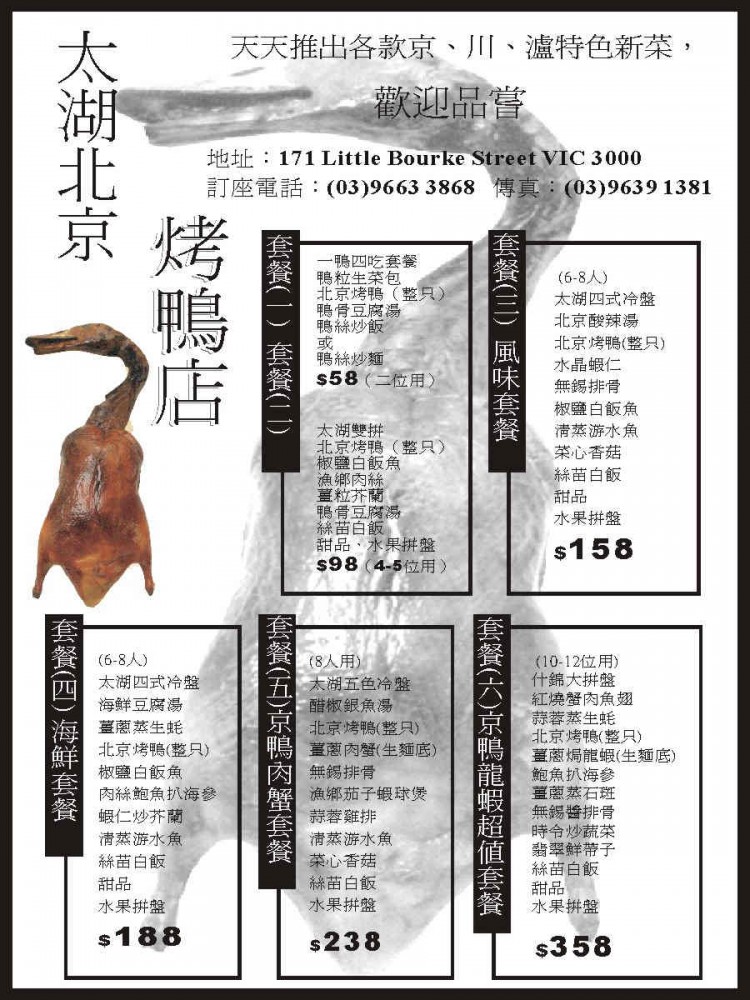 太湖北京
烤鴨店
天天推出各款京、川、瀘特色新菜，
歡迎品嘗
地址：171 Little Bourke Street VIC 3000
訂座電話：(03)9663 3868 傳真：(03)9639 1381
套餐(一) 套餐(二)
一鴨四吃套餐
鴨粒生菜包
北京烤鴨（整只）
鴨骨豆腐湯
鴨絲炒飯
或
鴨絲炒麵
$58（二位用）
太湖雙拼
北京烤鴨（整只）
椒鹽白飯魚
漁鄉肉絲
薑粒芥蘭
鴨骨豆腐湯
絲苗白飯
甜品、水果拼盤
$98（4-5位用）
套餐(三) 風味套餐
(6-8人)
太湖四式冷盤
北京酸辣湯
北京烤鴨(整只)
水晶蝦仁
無錫排骨
椒鹽白飯魚
清蒸游水魚
菜心香菇
絲苗白飯
甜品
水果拼盤
$158
套餐(四) 海鮮套餐
(6-8人)
太湖四式冷盤
海鮮豆腐湯
薑蔥蒸生蚝
北京烤鴨(整只)
椒鹽白飯魚
肉絲鮑魚扒海參
蝦仁炒芥蘭
清蒸游水魚
絲苗白飯
甜品
水果拼盤
$188
套餐(五)京鴨肉蟹套餐
(8人用)
太湖五色冷盤
醋椒銀魚湯
北京烤鴨(整只)
薑蔥肉蟹(生麵底)
無錫排骨
漁鄉茄子蝦球煲
蒜蓉雞排
清蒸游水魚
菜心香菇
絲苗白飯
水果拼盤
$238
套餐(六)京鴨龍蝦超值套餐
(10-12位用)
什錦大拼盤
紅燒蟹肉魚翅
蒜蓉蒸生蚝
北京烤鴨(整只)
薑蔥焗龍蝦(生麵底)
鮑魚扒海參
薑蔥蒸石斑
無錫醬排骨
時令炒蔬菜
翡翠鮮帶子
絲苗白飯
甜品
水果拼盤
$358